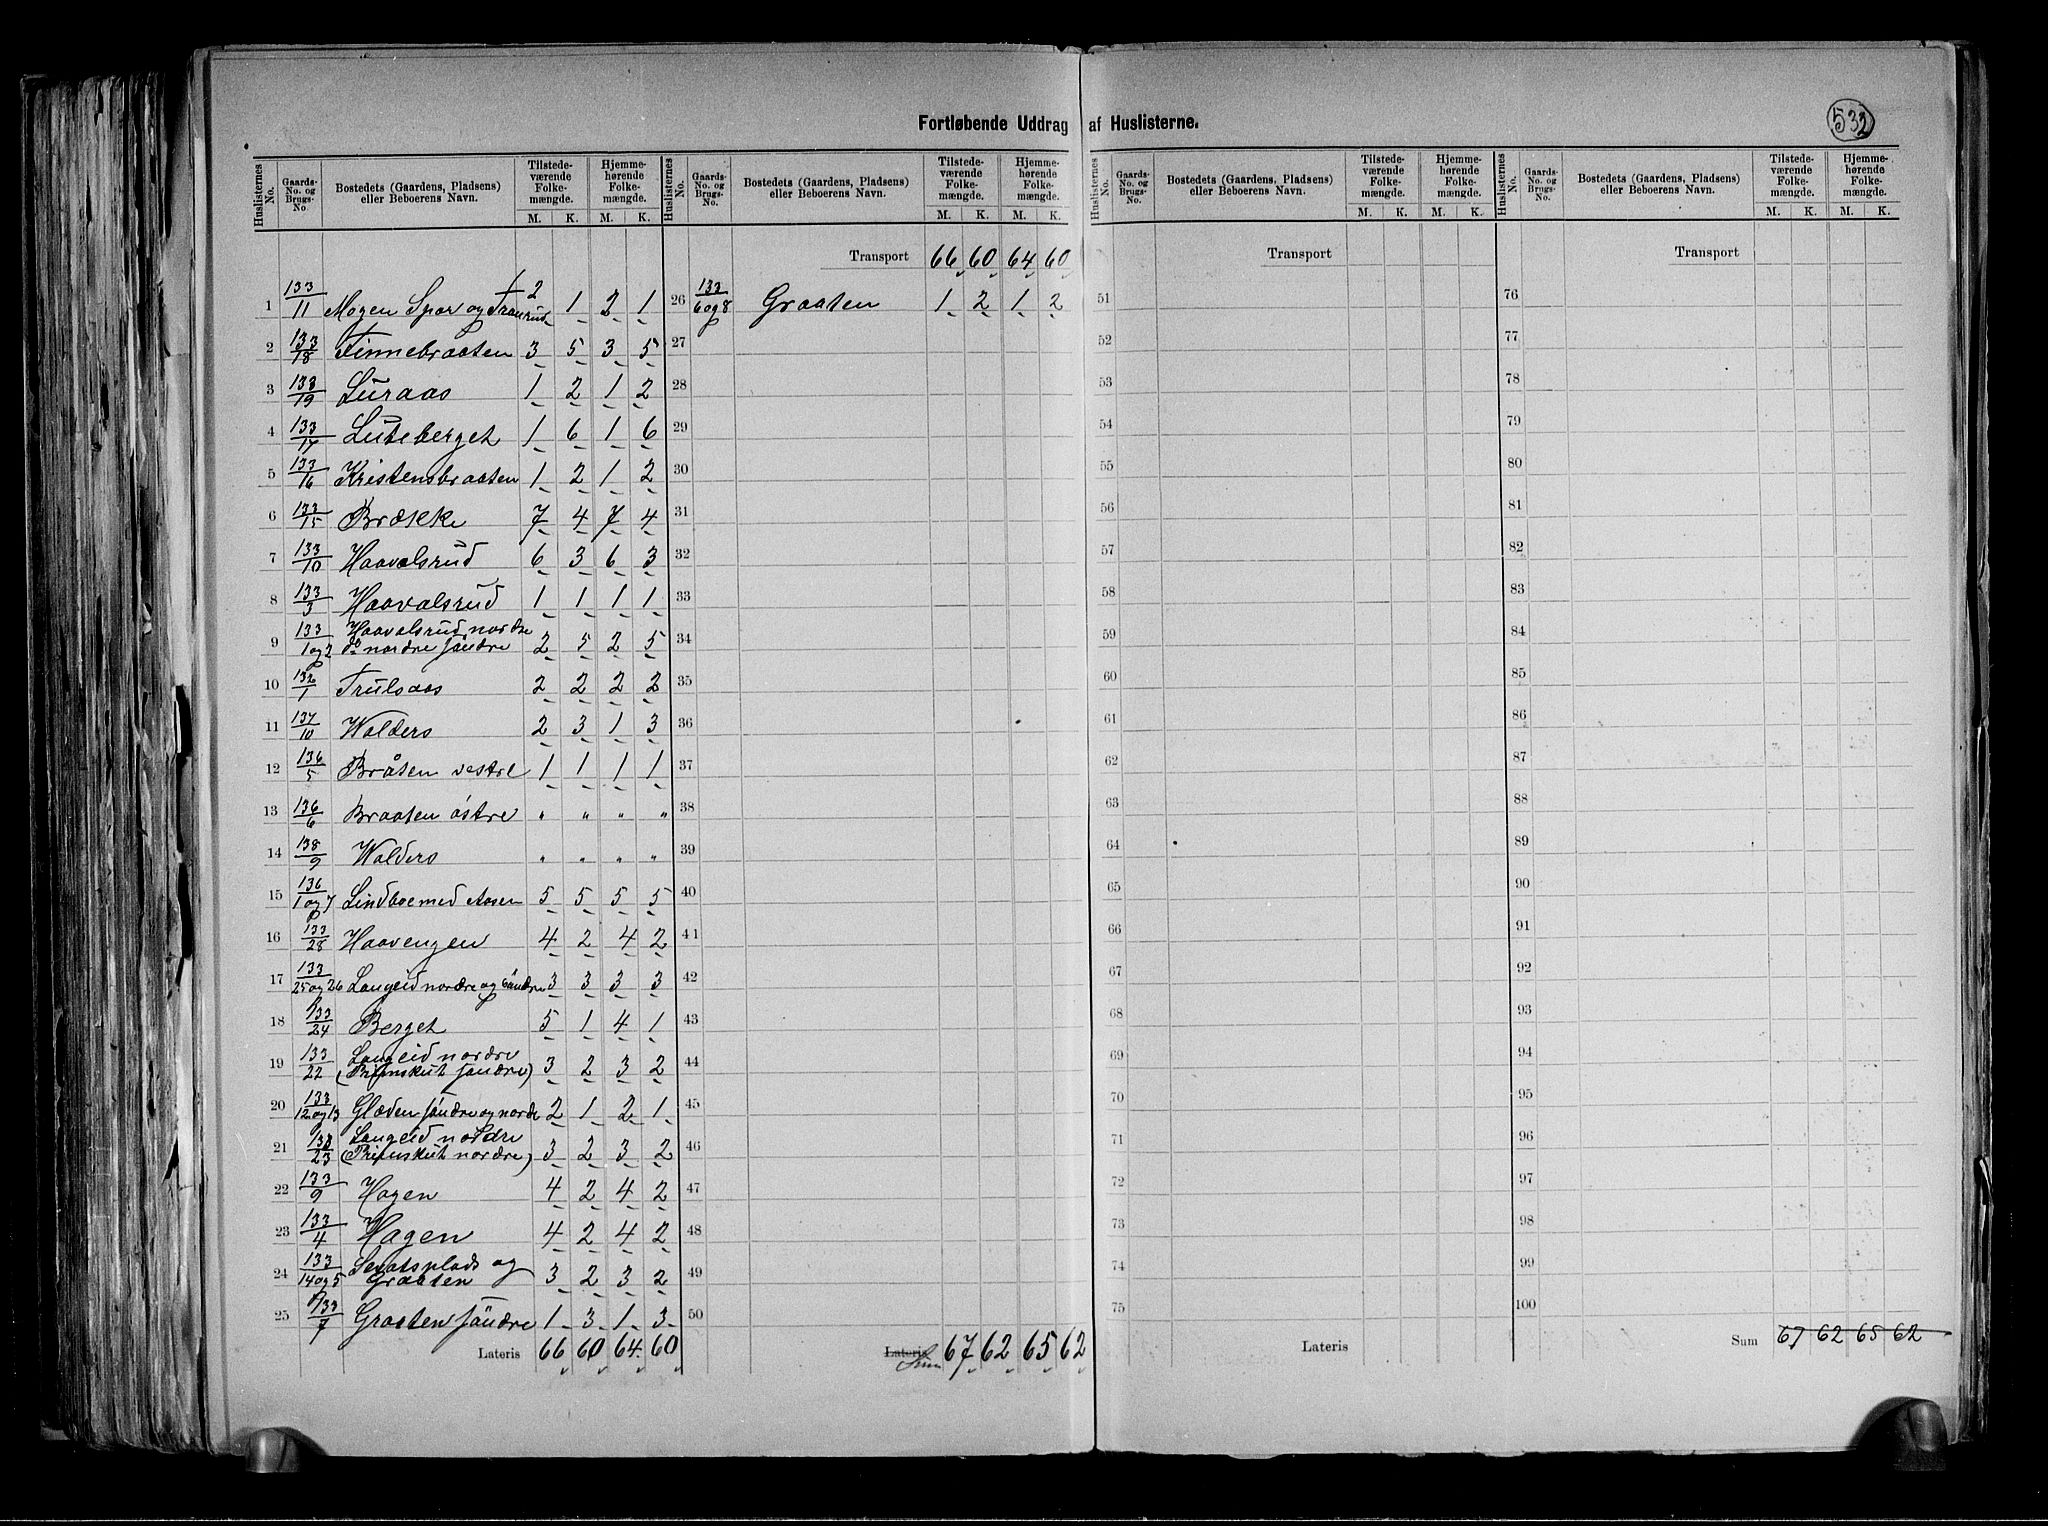 Fortløbende Uddrag af Huslisterne.
532
Huslisternes No. Gaards-No. og Brugs-No. Bostedets (Gaardens, Pladsens) eller Beboerens Navn. Tilstedeværende Folkemængde. M. K. Hjemmehørende Folkemængde. M. K.
1 133/11 Mogen Spor og 2 1 2 1
2 133/18 Finnebraaten 3 5 3 5
3 133/19 Luraas 1 2 1 2
4 133/17 Luteberget 1 6 1 6
5 133/16 Kristensbraaten 1 2 1 2
6 133/15 Brække 7 4 7 4
7 133/10 Haavalsrud 6 3 6 3
8 133/3 Haavalsrud 1 1 1 1
9 133/1 og 2 Haavalsrud nordre
do nordre søndre 2 5 2 5
10 132/1 Trulsaas 2 2 2 2
11 137/10 Walders 2 3 1 3
12 136/5 Bråten vestre 1 1 1 1
13 136/6 Braaten østre " " " "
14 138/9 Walders " " " "
15 136/1 og 7 Lindboe med Aasen 5 5 5 5
16 133/28 Haavengen 4 2 4 2
17 133/25 og 26 Langeid nordre og søndre 3 3 3 3
18 133/24 Berget 5 1 4 1
19 133/22 Langeid nordre
søndre) 3 2 3 2
20 133/12 og 13 Glæden søndre og nordre 2 1 2 1
21 133/23 Langeid nordre
nordre) 3 2 3 2
22 133/9 Hagen 4 2 4 2
23 133/4 Hagen 4 2 4 2
24 133/14 og 5 og
Graaten 3 2 3 2
25 133/7 Graaten søndre 1 3 1 3
Lateris 66 60 64 60
Huslisternes No. Gaards-No. og Brugs-No. Bostedets (Gaardens, Pladsens) eller Beboerens Navn. Tilstedeværende Folkemængde. M. K. Hjemmehørende Folkemængde. M. K.
Transport 66 60 64 60
26 133/6 og 8 Graaten 1 2 1 2
27
28
29
30
31
32
33
34
35
36
37
38
39
40
41
42
43
44
45
46
47
48
49
50
Lateris Sum 67 62 65 62
Huslisternes No. Gaards-No. og Brugs-No. Bostedets (Gaardens, Pladsens) eller Beboerens Navn. Tilstedeværende Folkemængde. M. K. Hjemmehørende Folkemængde. M. K.
Transport
51
52
53
54
55
56
57
58
59
60
61
62
63
64
65
66
67
68
69
70
71
72
73
74
75
Lateris
Huslisternes No. Gaards-No. og Brugs-No. Bostedets (Gaardens, Pladsens) eller Beboerens Navn. Tilstedeværende Folkemængde. M. K. Hjemmehørende Folkemængde. M. K.
Transport
76
77
78
79
80
81
82
83
84
85
86
87
88
89
90
91
92
93
94
95
96
97
98
99
100
Sum 67 62 65 62